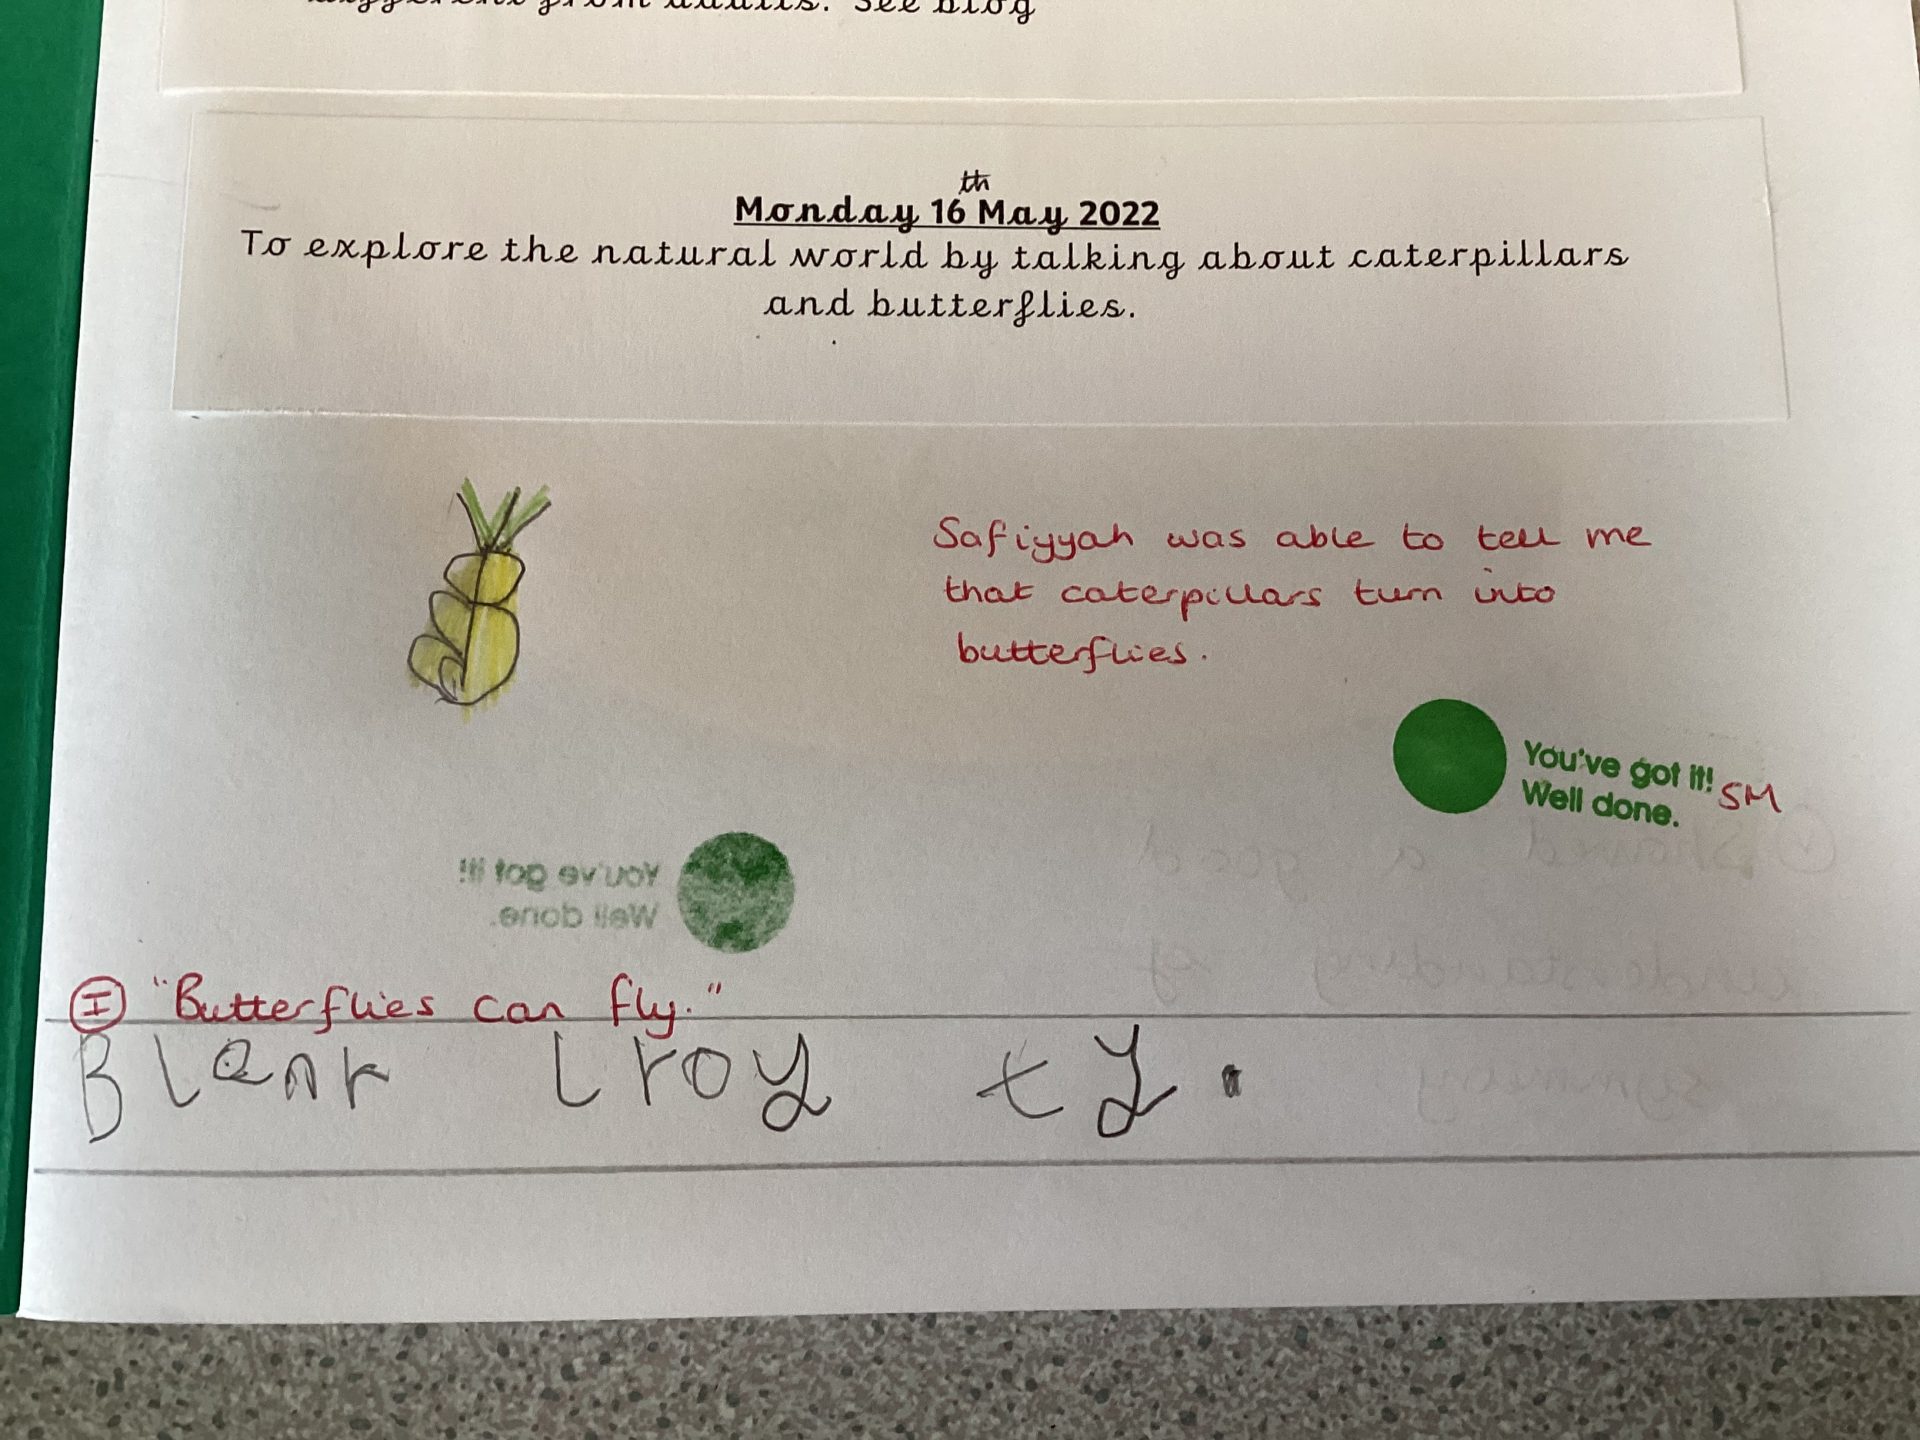 different from adults. See blog
th
Monday 16 May 2022
To explore the natural world by talking about caterpillars
and butterflies.
Safiyyah was able to tell me
that caterpillars turn into
butterflies.
You've got it!
Well done. SM
You've got it!
Well done.
I "Butterflies can fly."